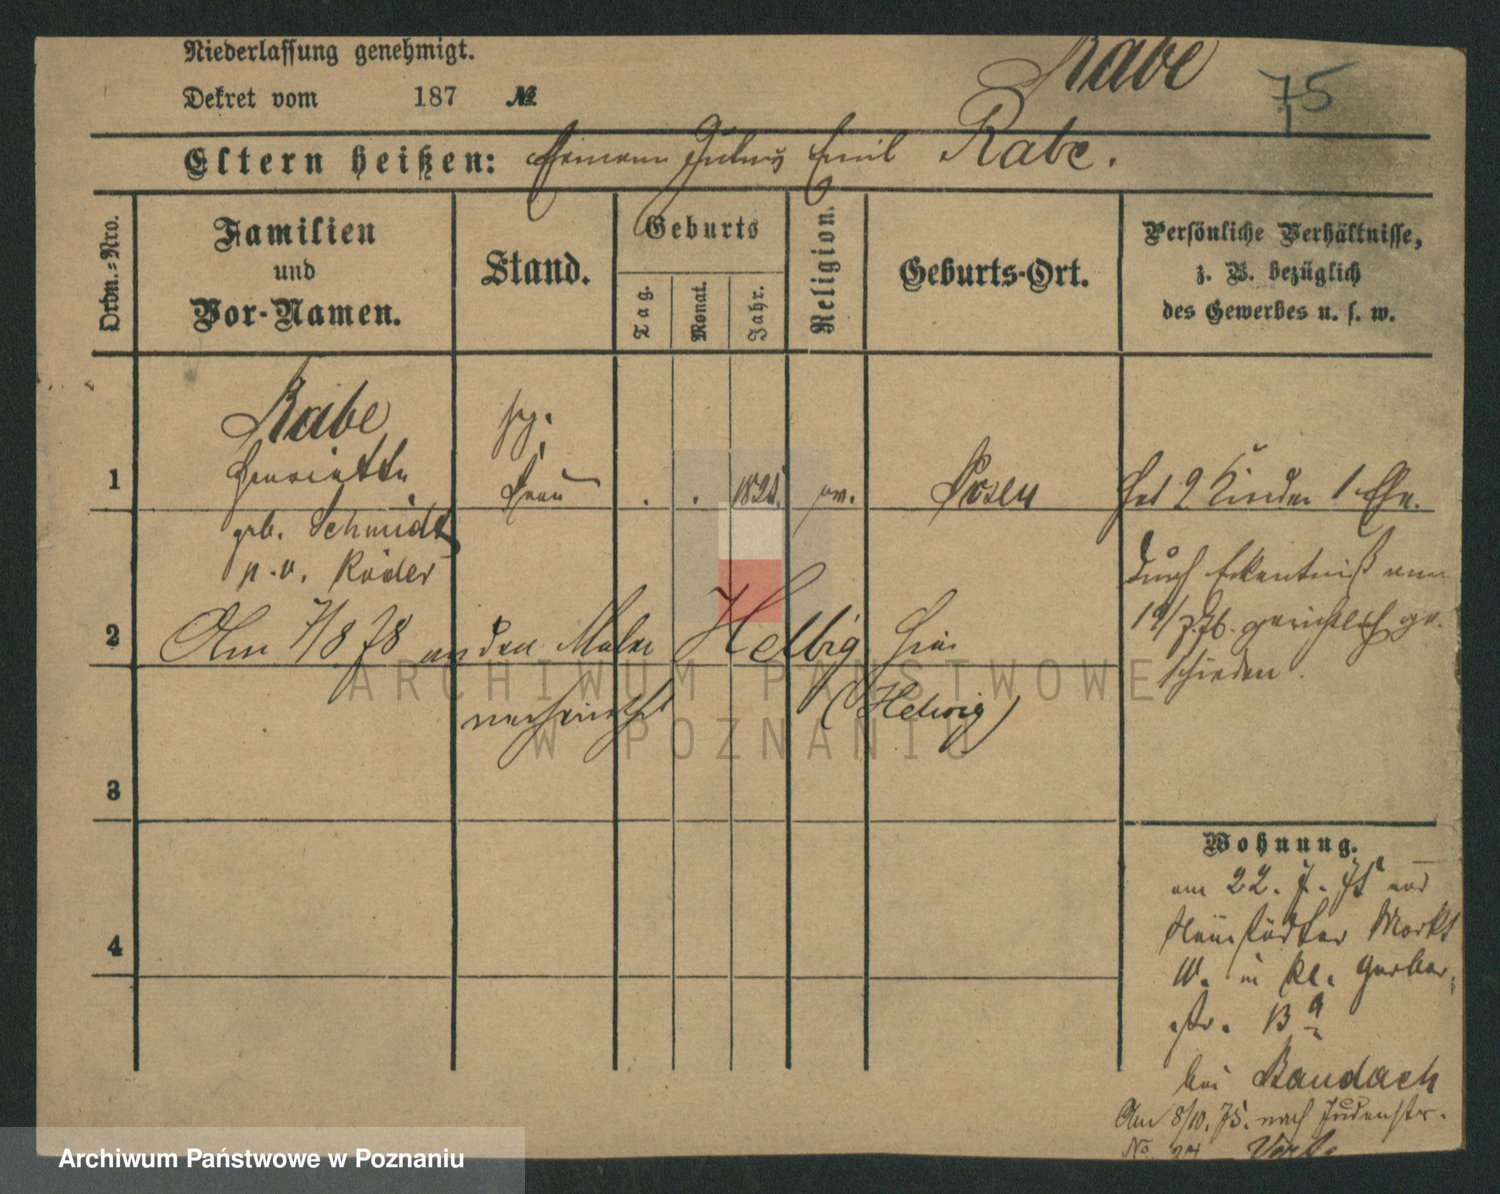 Niederlassung genehmigt.
Rabe
75
Dekret vom 187 №
Eltern heißen: Hermann Julius Emil Rabe.
Ordn.-Nro.
Familien
und
Vor-Namen.
Stand.
Geburts
Tag.
Monat.
Jahr.
Religion.
Geburts-Ort.
Persönliche Verhältnisse,
z. B. bezüglich
des Gewerbes u. s. w.
Rabe
1 Henriette Frau . . ev. Posen Hat 2 Kinder 1 Ehe.
geb. Schmidt
p. v. Röder
durch Erkentniß vom
gerichtlich ge-
schieden.
2 Am 7/8 78 an den Maler Helbig hier
verheirathet (Helwig)
3
4
Wohnung.
am 22. 7. 75 von
Neustädter Markt
10. in kl. Gerber-
str. 13
bei Baudach
Am 8/10. 75. nach Judenstr.
No. 27
ARCHIWUM PAŃSTWOWE
W POZNANIU
Archiwum Państwowe w Poznaniu